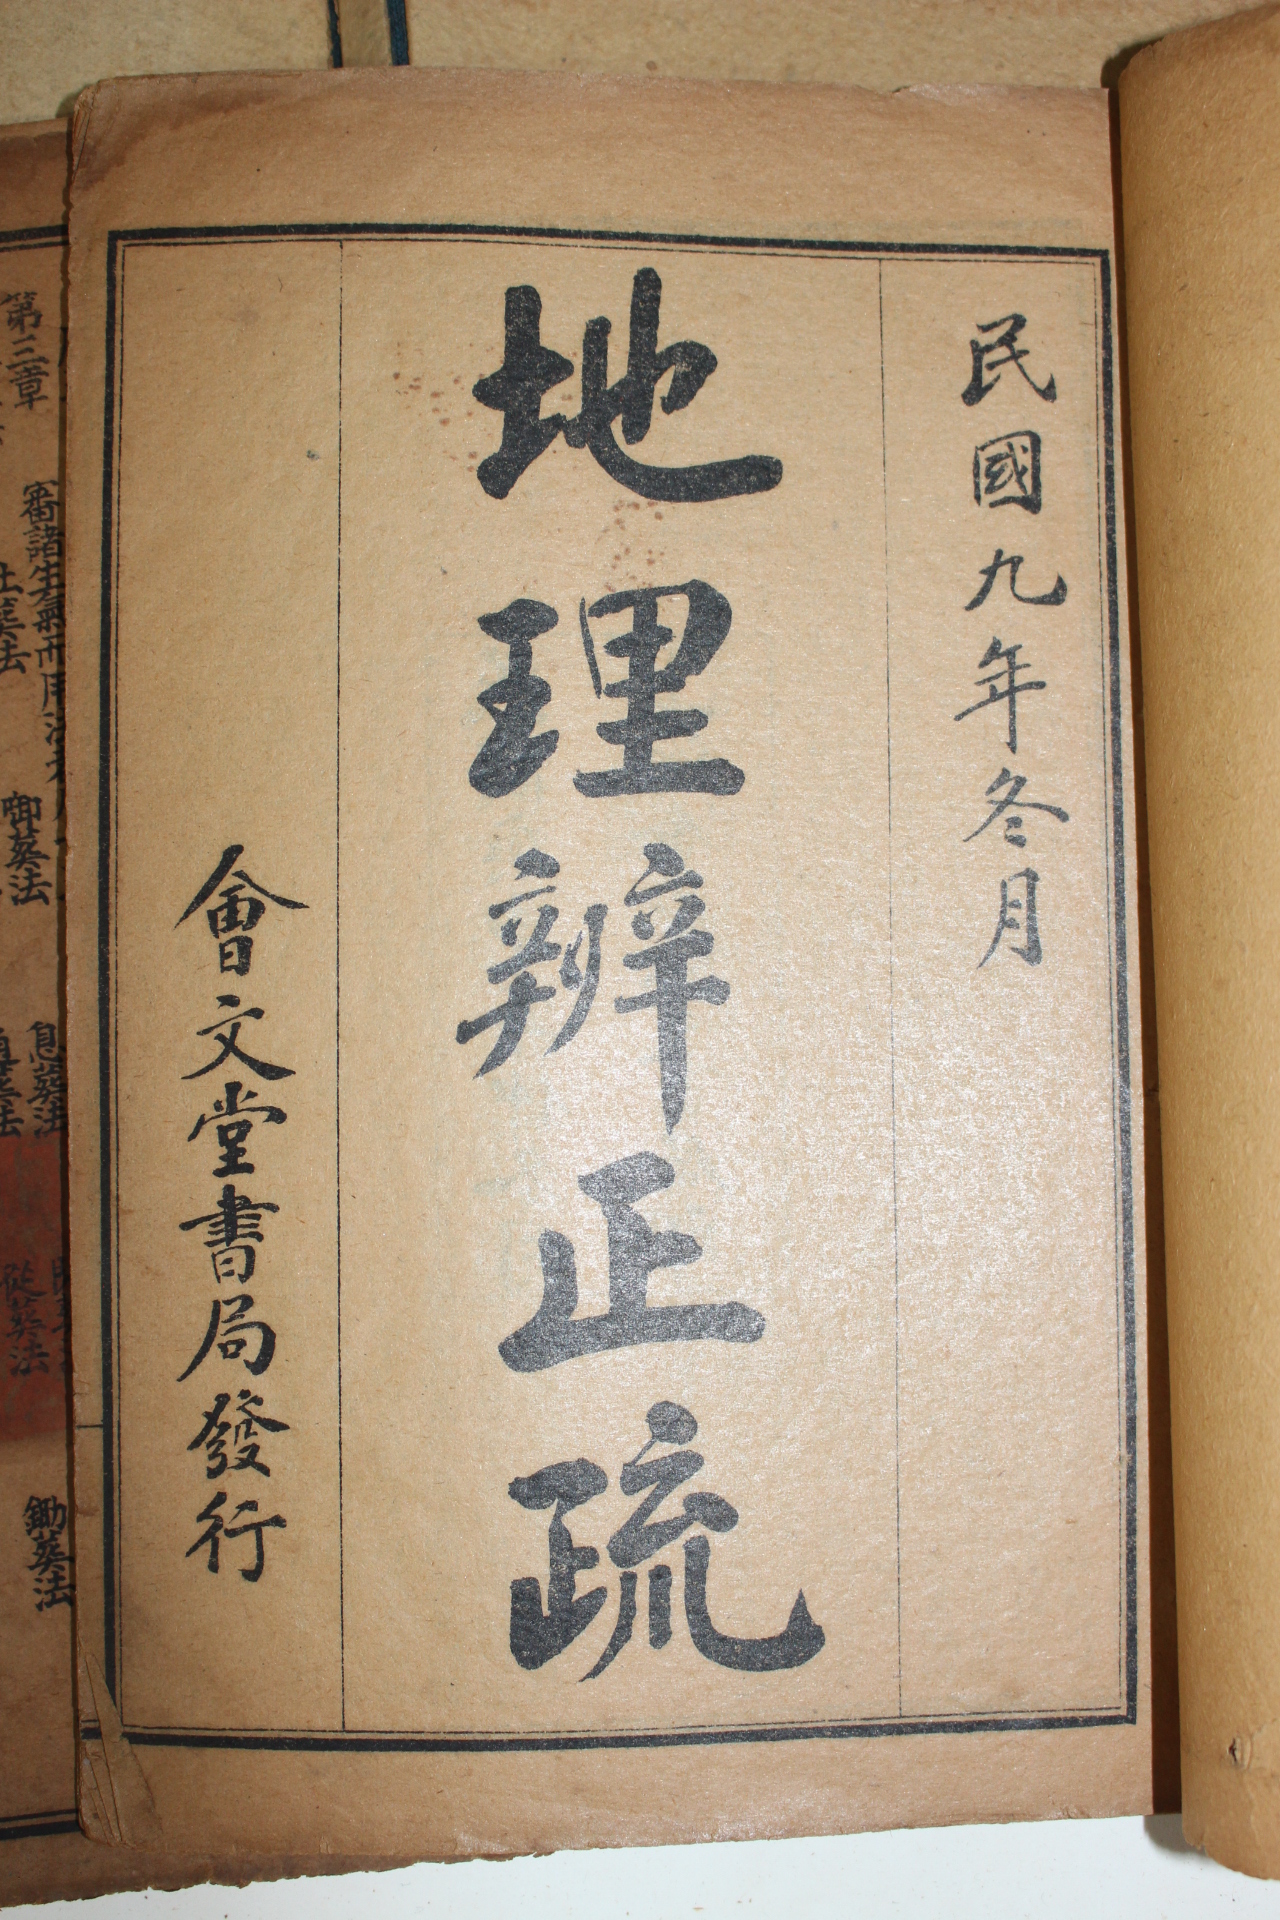 民國九年冬月
地理辨正疏
會文堂書局發行
第三章
審諸生氣
葬法
啣葬法
息葬法
從葬法
鋤葬法